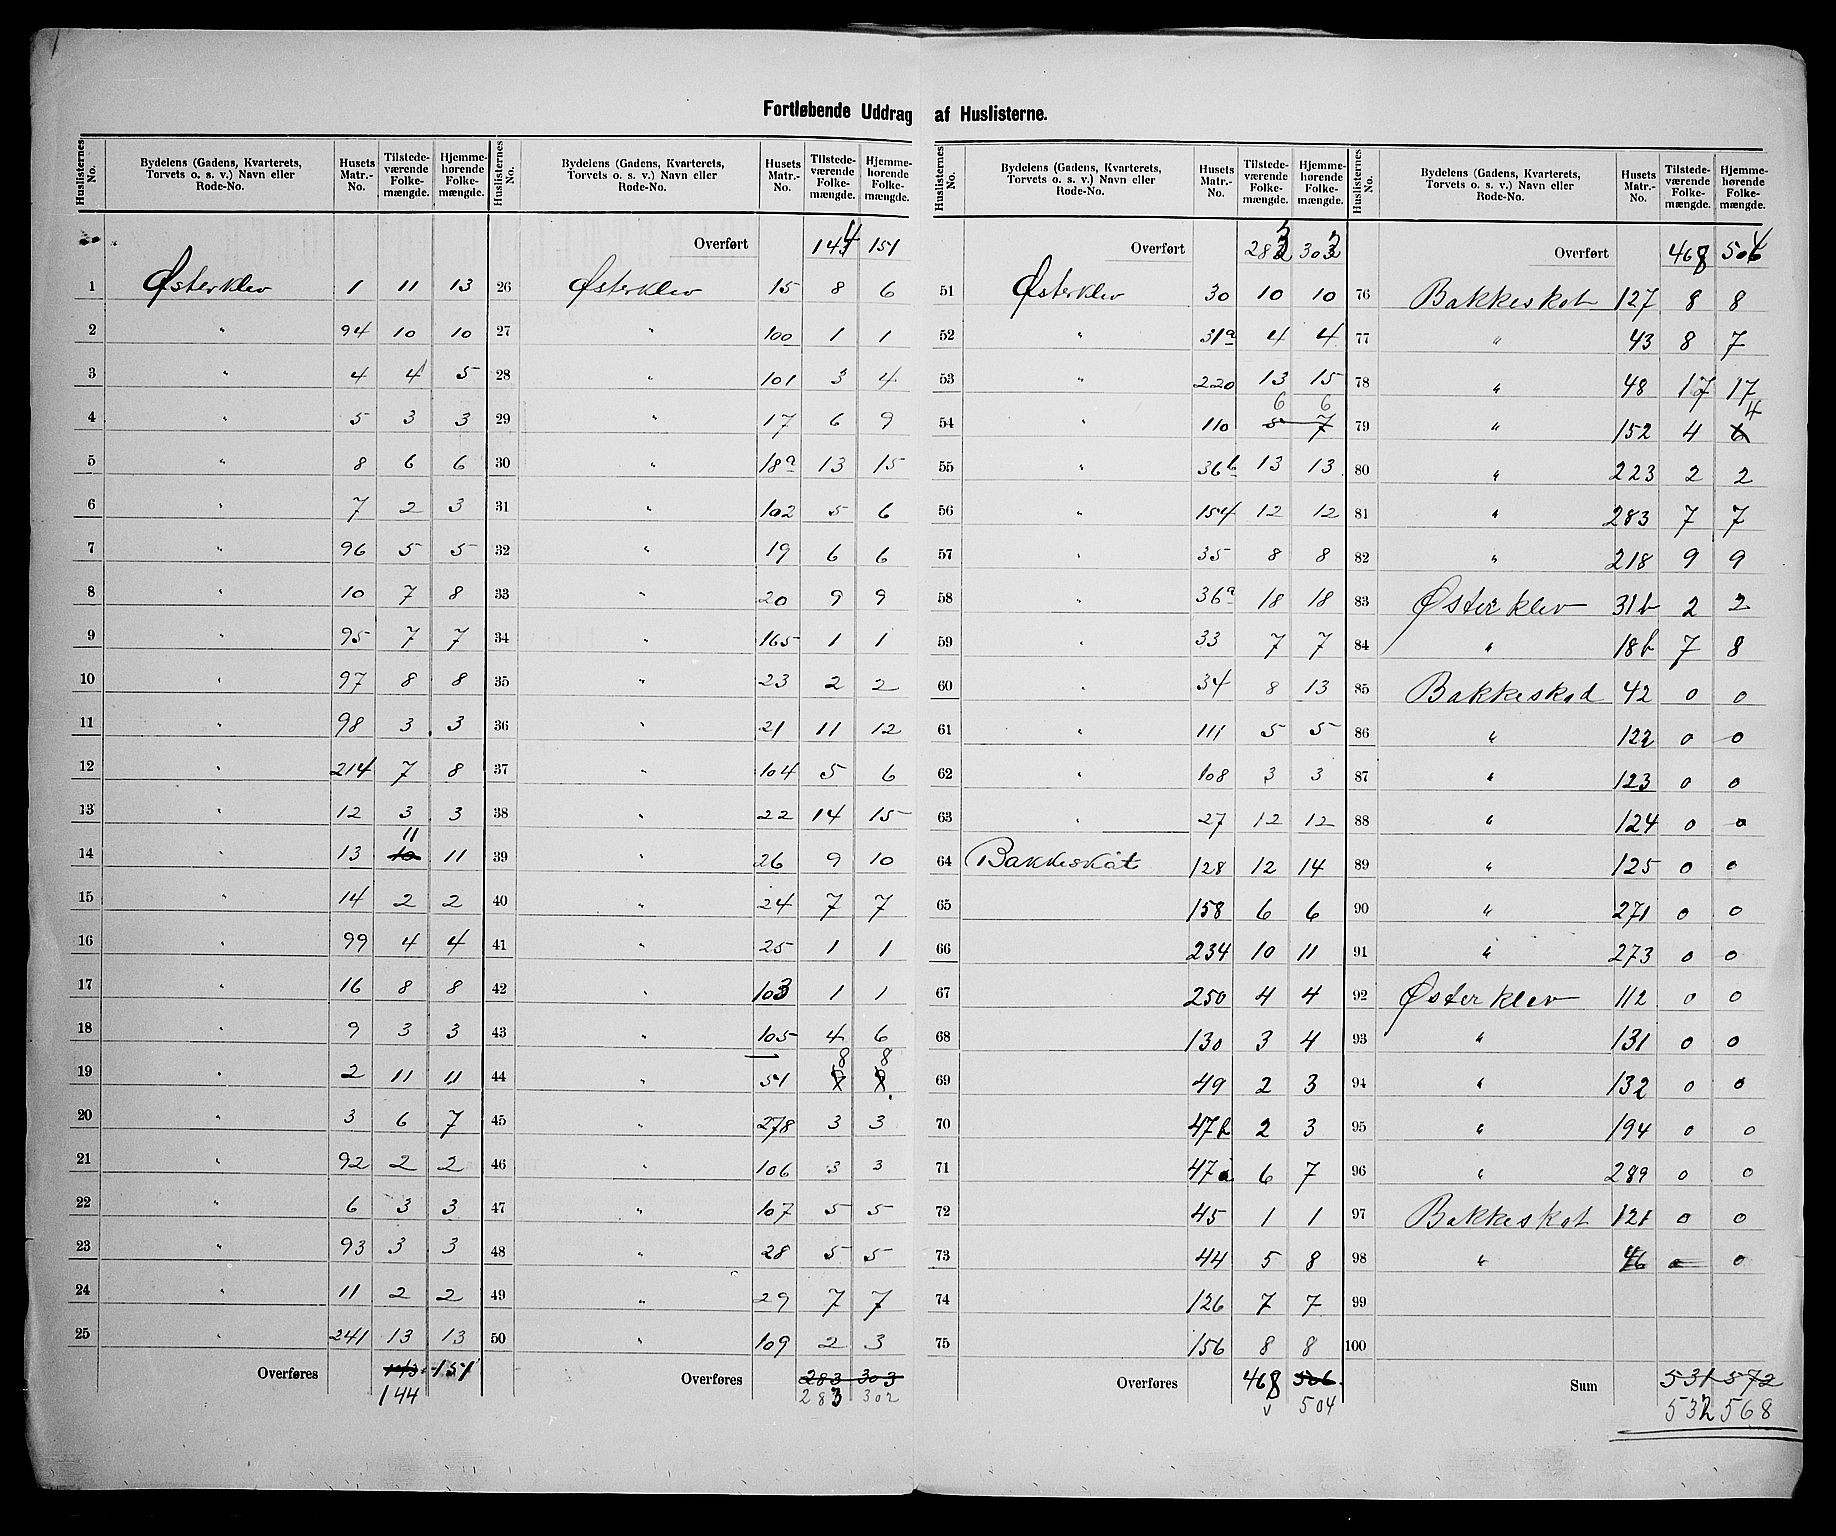 Fortløbende Uddrag af Huslisterne.
Huslisternes No. | Bydelens (Gadens, Kvarterets, Torvets o. s. v.) Navn eller Rode-No. | Husets Matr.-No. | Tilstedeværende Folkemængde. | Hjemmehørende Folkemængde.
1 Østerklev 1 11 13
2 " 94 10 10
3 " 4 4 5
4 " 5 3 3
5 " 8 6 6
6 " 7 2 3
7 " 96 5 5
8 " 10 7 8
9 " 95 7 7
10 " 97 8 8
11 " 98 3 3
12 " 214 7 8
13 " 12 3 3
14 " 13 10 11 11
15 " 14 2 2
16 " 99 4 4
17 " 16 8 8
18 " 9 3 3
19 " 2 11 11
20 " 3 6 7
21 " 92 2 2
22 " 6 3 3
23 " 93 3 3
24 " 11 2 2
25 " 241 13 13
Overføres 143 151
144
Huslisternes No. | Bydelens (Gadens, Kvarterets, Torvets o. s. v.) Navn eller Rode-No. | Husets Matr.-No. | Tilstedeværende Folkemængde. | Hjemmehørende Folkemængde.
Overført 144 151
26 Østerklev 15 8 6
27 " 100 1 1
28 " 101 3 4
29 " 17 6 9
30 " 18a 13 15
31 " 102 5 6
32 " 19 6 6
33 " 20 9 9
34 " 165 1 1
35 " 23 2 2
36 " 21 11 12
37 " 104 5 6
38 " 22 14 15
39 " 26 9 10
40 " 24 7 7
41 " 25 1 1
42 " 103 1 1
43 " 105 4 6
44 " 51 8 8
45 " 278 3 3
46 " 106 3 3
47 " 107 5 5
48 " 28 5 5
49 " 29 7 7
50 " 109 2 3
Overføres 283 303
283 302
Huslisternes No. | Bydelens (Gadens, Kvarterets, Torvets o. s. v.) Navn eller Rode-No. | Husets Matr.-No. | Tilstedeværende Folkemængde. | Hjemmehørende Folkemængde.
Overført 283 302
51 Østerklev 30 10 10
52 " 31a 4 4
53 " 220 13 15
54 " 110 5 6 7 6
55 " 36b 13 13
56 " 154 12 12
57 " 35 8 8
58 " 36a 18 18
59 " 33 7 7
60 " 34 8 13
61 " 111 5 5
62 " 108 3 3
63 " 27 12 12
64 Bakkeskot 128 12 14
65 158 6 6
66 234 10 11
67 250 4 4
68 130 3 4
69 49 2 3
70 47b 2 3
71 47a 6 7
72 45 1 1
73 44 5 8
74 126 7 7
75 156 8 8
Overføres 468 506
504
Huslisternes No. | Bydelens (Gadens, Kvarterets, Torvets o. s. v.) Navn eller Rode-No. | Husets Matr.-No. | Tilstedeværende Folkemængde. | Hjemmehørende Folkemængde.
Overført 468 504
76 Bakkeskot 127 8 8
77 " 43 8 7
78 " 48 17 17
79 " 152 4 6 4
80 " 223 2 2
81 " 283 7 7
82 " 218 9 9
83 Østerklev 31b 2 2
84 " 18b 7 8
85 Bakkeskod 42 0 0
86 " 122 0 0
87 " 123 0 0
88 " 124 0 0
89 " 125 0 0
90 " 271 0 0
91 " 273 0 0
92 Østerklev 112 0 0
93 " 131 0 0
94 " 132 0 0
95 " 194 0 0
96 " 289 0 0
97 Bakkeskot 121 0 0
98 " 46 0 0
99
100
Sum 531 572
532 568